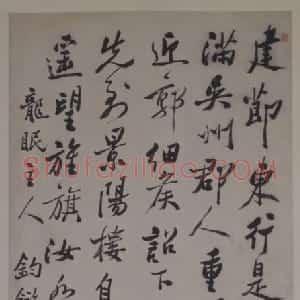 建節東行是
滿吳州郡人重
近郭佃矦詔下
先到景陽樓自
遥望旌旗汝
龍眠主人 鈞
Shufaziliao.com